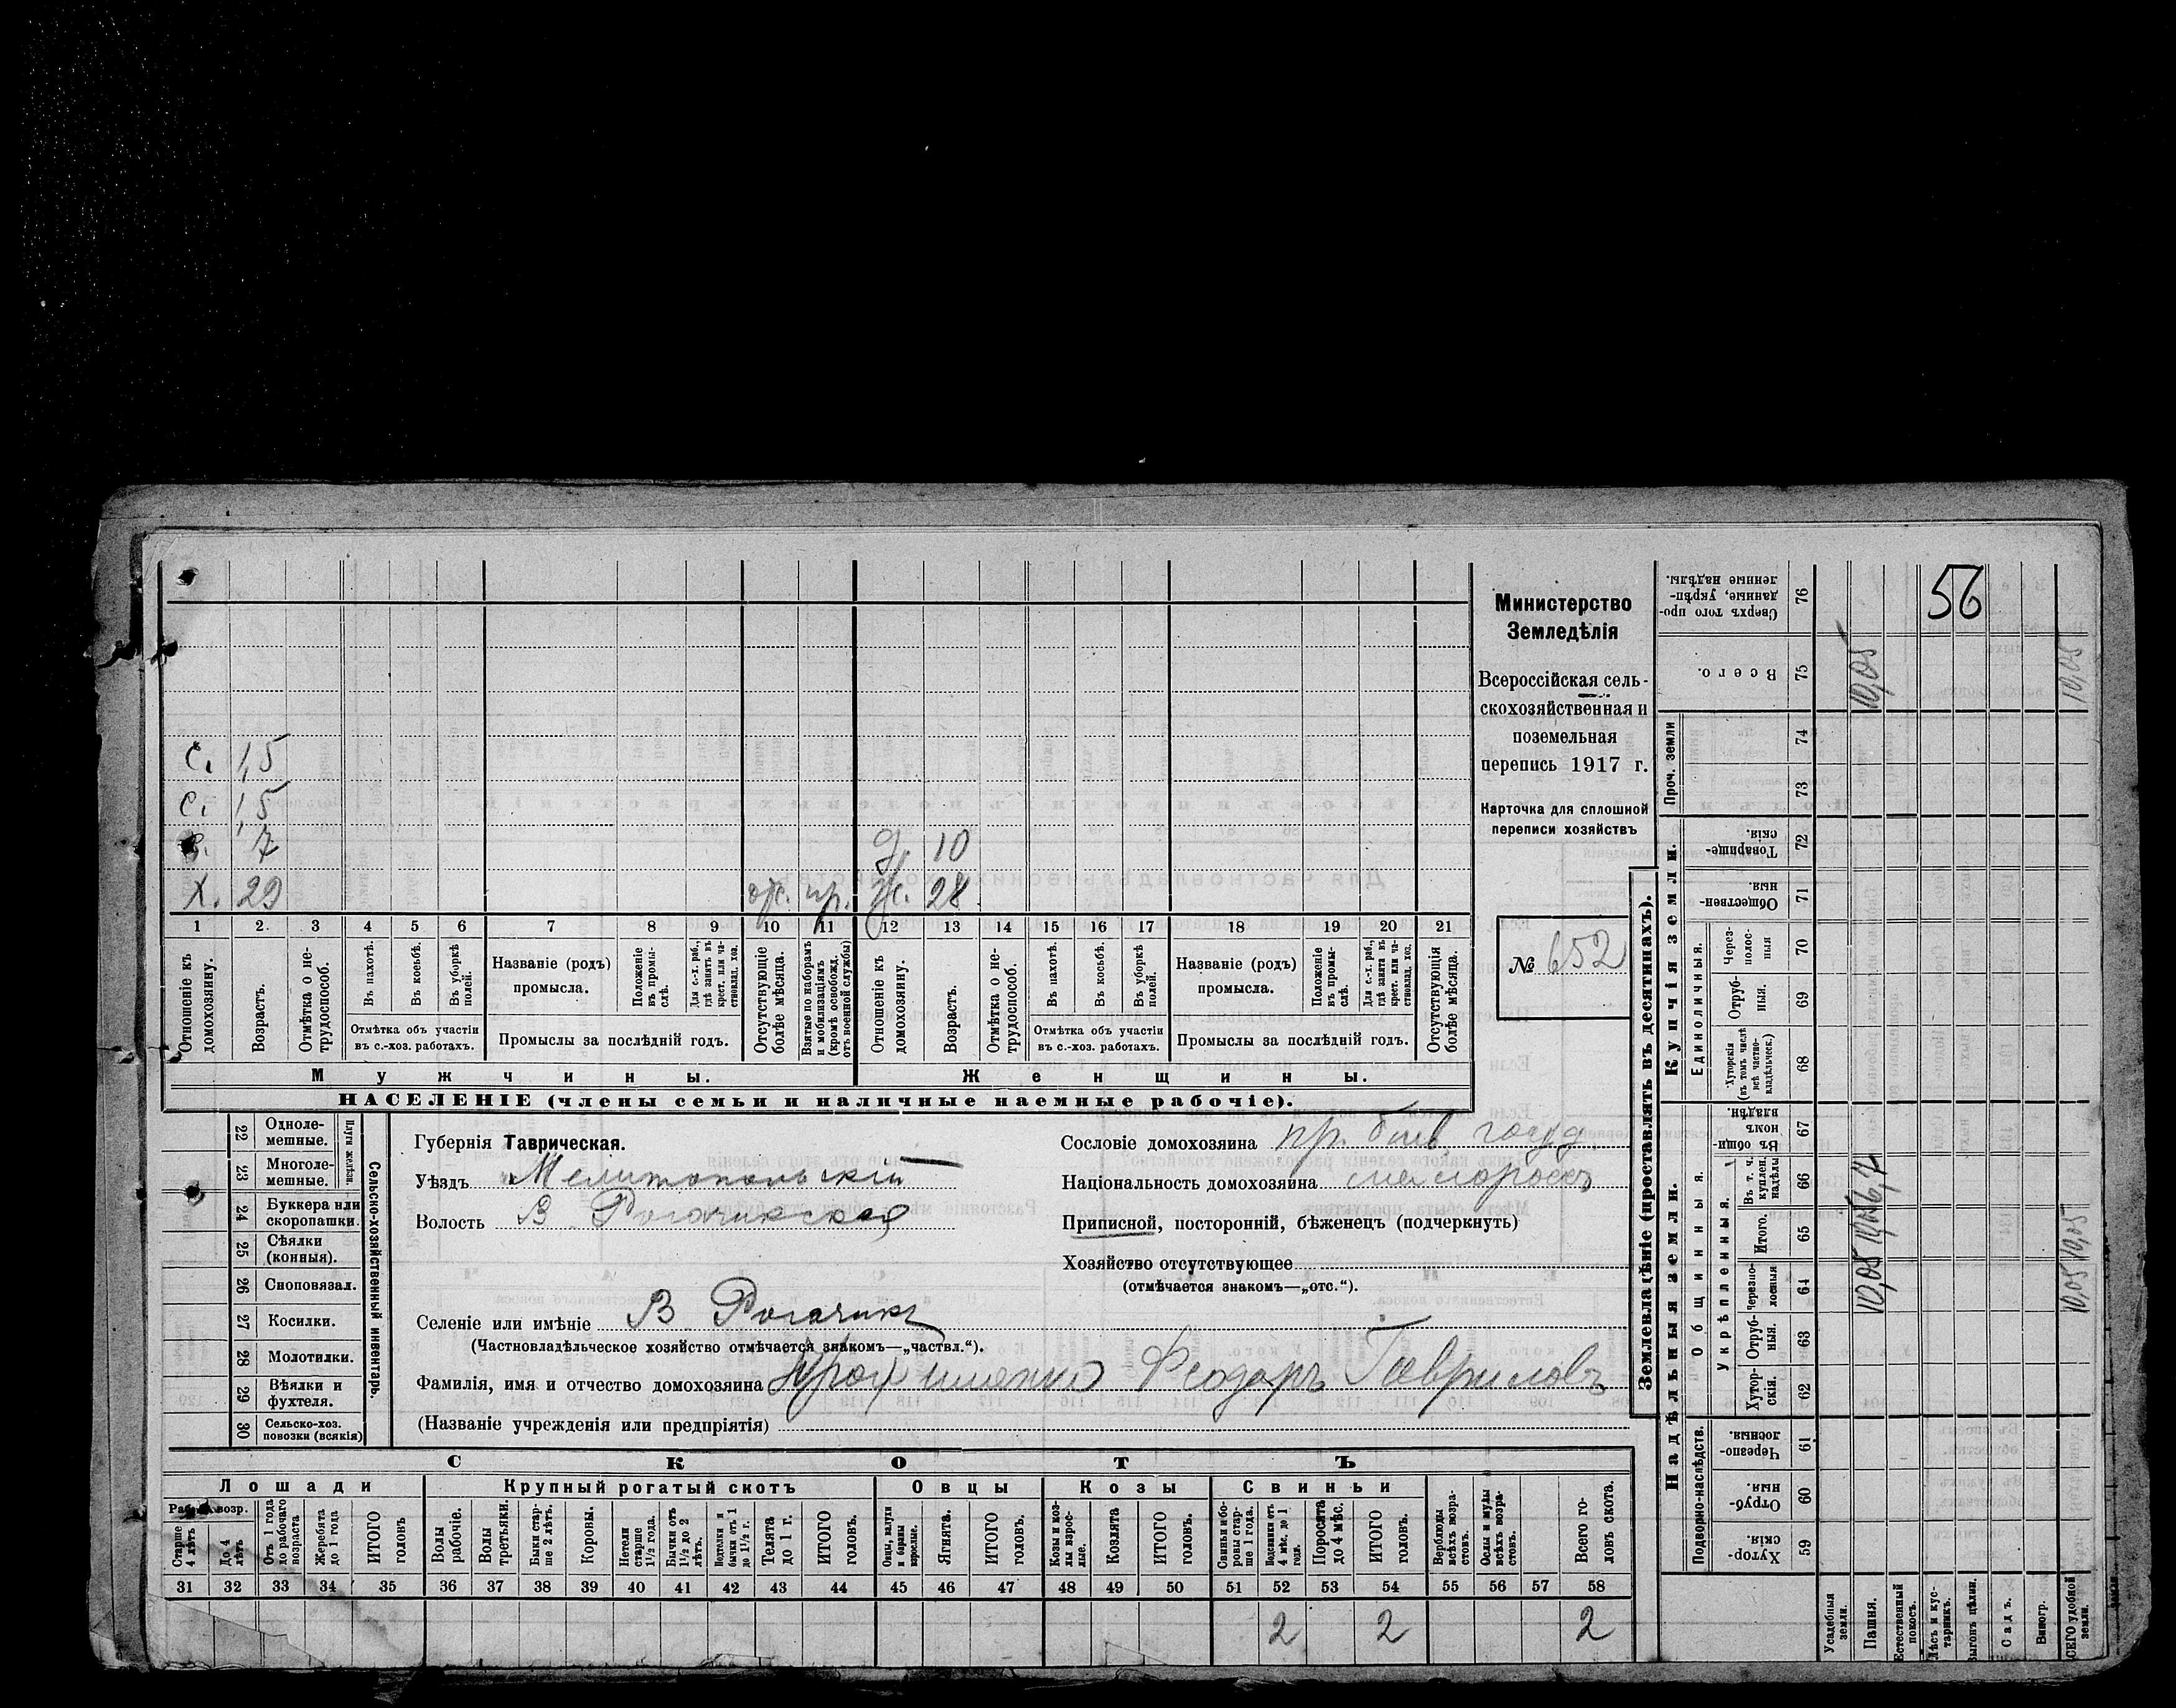 56
Министерство
Земледѣлія
Всероссійская сель-
скохозяйственная и
поземельная
перепись 1917 г.
Карточка для сплошной
переписи хозяйствъ
№ 652
с. 1,5
с. 1,5
с. 7 д. 10
х. 29 отс. пр. ж. 28
1 2. 3 4 5 6 7 8 9 10 11 12 13 14 15 16 17 18 19 20 21
Отношеніе къ домохозяину.
Возрастъ.
Отмѣтка о не-трудоспособ.
Въ пахотѣ.
Въ косьбѣ.
Въ уборкѣ полей.
Отмѣтка объ участіи
въ с.-хоз. работахъ.
Названіе (родъ)
промысла.
Положеніе въ промы-слѣ.
Для с.-х. раб., гдѣ занятъ въ крест. или ча-стновлад. хоз.
Промыслы за послѣдній годъ.
Отсутствующіе болѣе мѣсяца.
Взятые по наборамъ и мобилизаціямъ (кромѣ освобожд. отъ военной службы)
Отношеніе къ домохозяину.
Возрастъ.
Отмѣтка о не-трудоспособ.
Въ пахотѣ.
Въ косьбѣ.
Въ уборкѣ полей.
Отмѣтка объ участіи
въ с.-хоз. работахъ.
Названіе (родъ)
промысла.
Положеніе въ промы-слѣ.
Для с.-х. раб., гдѣ занята въ крест. или ча-стновлад. хоз.
Промыслы за послѣдній годъ.
Отсутствующія болѣе мѣсяца.
Мужчины. Женщины.
НАСЕЛЕНІЕ (члены семьи и наличные наемные рабочіе).
Сельско-хозяйственный инвентарь.
Плуги желѣзн.
22 Одноле-мешные.
23 Многоле-мешные.
24 Буккера или скоропашки.
25 Сѣялки (конныя).
26 Сноповязал.
27 Косилки.
28 Молотилки.
29 Вѣялки и фухтеля.
30 Сельско-хоз. повозки (всякія)
Губернія Таврическая.
Уѣздъ Мелитопольскій
Волость В Рогачикская
Селеніе или имѣніе В Рогачикъ
(Частновладѣльческое хозяйство отмѣчается знакомъ—„частвл.“).
Фамилія, имя и отчество домохозяина Феодоръ Гавриловъ
(Названіе учрежденія или предпріятія)
Сословіе домохозяина пр. быв. госуд.
Національность домохозяина малороссъ
Приписной, посторонній, бѣженецъ (подчеркнуть)
Хозяйство отсутствующее
(отмѣчается знакомъ—„отс.“).
СКОТЪ
Лошади Крупный рогатый скотъ Овцы Козы Свиньи
Рабоч. возр.
Старше 4 лѣтъ
До 4 лѣтъ
Отъ 1 года до рабочаго возраста
Жеребята до 1 года
ИТОГО головъ
Волы рабочіе.
Волы третьяки.
Быки стар-ше 2 лѣтъ.
Коровы.
Нетели старше 1½ года.
Бычки отъ 1½ до 2 лѣтъ.
Подтелки и бычки отъ 1 до 1½ г.
Телята до 1 г.
ИТОГО головъ.
Овцы, валухи и бараны взрослые.
Ягнята.
ИТОГО головъ.
Козы и коз-лы взрос-лые.
Козлята
ИТОГО головъ.
Свиньи и бо-ровы стар-ше 1 года.
Подсвинки отъ 4 мѣс. до 1 года.
Поросята до 4 мѣс.
ИТОГО головъ.
Верблюды всѣхъ возра-стовъ.
Ослы и мулы всѣхъ возра-стовъ.
Всего го-ловъ скота.
31 32 33 34 35 36 37 38 39 40 41 42 43 44 45 46 47 48 49 50 51 52 53 54 55 56 57 58
2 2 2
Землевладѣніе (проставлять въ десятинахъ).
Надѣльныя земли. Купчія земли. Проч. земли
Подворно-наслѣдств.
Общинныя.
Укрѣпленныя.
Единоличныя.
59 Хутор-скія.
60 Отруб-ныя
61 Черезпо-лосныя.
62 Хутор-скія.
63 Отруб-ныя.
64 Черезпо-лосныя
65 Итого.
66 Въ т. ч. куплен. надѣлы
67 Въ общин-номъ владѣн.
68 Хуторскія (въ томъ числѣ всѣ частно-владѣльческ.)
69 Отруб-ныя.
70 Через-полос-ныя
71 Обществен-ныя.
72 Товарище-скія.
73
74
75 Всего.
76 Сверхъ того про-данные, укрѣп-ленные надѣлы.
Усадебныя земли.
Пашня. 10,05 10,05 6,7 10,05
Естественный покосъ.
Лѣсъ и кус-тарникъ.
Выгонъ цѣлин.
Садъ.
Виногр.
ВСЕГО удобной земли. 10,05 10,05 10,05